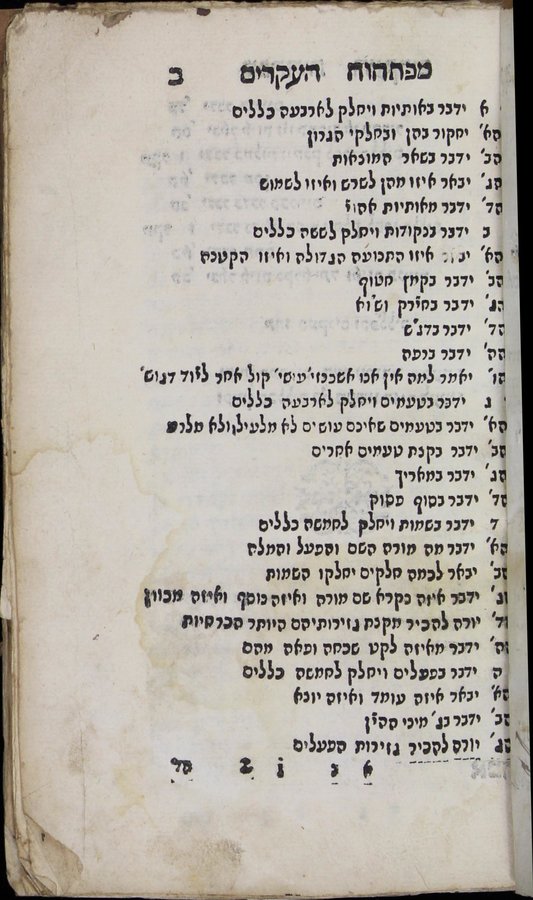 מפתחות העקרים ב
א ידבר באותיות ויחלק לארבעה כללים
הא' יחקור בהן ובחלקי הגרון
הב' ידבר בשאר המוצאות
הג' יבאר איזו מהן לשרש ואיזו לשמוש
הד' ידבר מאותיות אהוי
ב ידבר בנקודות ויחלק לששה כללים
הא' יבאר איזו התנועה הגדולה ואיזו הקטנה
הב' ידבר בקמץ חטוף
הג' ידבר בחירק ושוא
הד' ידבר בדגש
הה' ידבר ברפה
הו' יאמר למה אין אנו אשכנזי' עושי' קול אחר ליוד דגוש'
ג ידבר בטעמים ויחלק לארבעה כללים
הא' ידבר בטעמים שאינם עושים לא מלעיל ולא מלרע
הב' ידבר בקצת טעמים אחרים
הג' ידבר במאריך
הד' ידבר בסוף פסוק
ד ידבר בשמות ויחלק לחמשה כללים
הא' ידבר מה מורה השם והפעל והמלה
הב' יבאר לכמה חלקים יחלקו השמות
הג' ידבר איזה נקרא שם מורה ואיזה נוסף ואיזה מכוון
הד' יורה להכיר מקצת גזירותיהם היותר הכרחיות
הה' ידבר מאיזה לקט שכחה ופאה מהם
ה ידבר בפעלים ויחלק לחמשה כללים
הא' יבאר איזה עומד ואיזה יוצא
הב' ידבר בג' מיני ההין
הג' יורה להכיר גזירות הפעלים
א ב 2 הד'